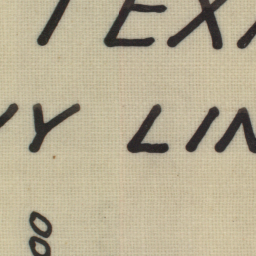 TEX
Y LIN
00